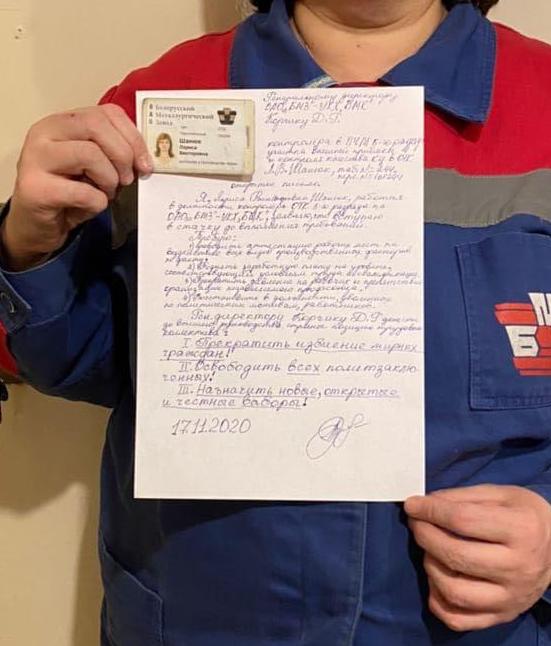 Белорусский
Металлургический
Завод
ОТК
Шанюк
Лариса
Викторовна
БМ
Генеральному директору
ОАО „БМЗ"-УКХ „БМК"
Корчику Д.Г.
контролера в ПЧМ 5-го разряда
участка внешней приёмки
и контроля качества
Л.В. Шанюк,
открытое письмо.
Я, Лариса Викторовна Шанюк, работая
в должности контролера ОТК 5-го разряда на
ОАО „БМЗ"-УКХ „БМК", заявляю, что вступаю
в стачку до выполнения требований.
Требую:
1) проводить аттестацию рабочих мест по
воздействию всех видов производственных факторов
2) поднять заработную плату на уровень,
соответствующий условиям труда
3) прекратить давление на рабочих и препятствование
организации независимого профсоюза.
4) восстановить в должности, уволенных
по политическим мотивам, работников.
Ген. директору Корчику Д.Г. донести
до высшего руководства страны позицию трудового
коллектива:
I. Прекратить избиение мирных
граждан!
II. Освободить всех политзаклю
ченных!
III. Назначить новые, открытые
и честные выборы!
17.11.2020